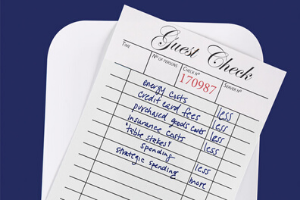 Guest Check
TIME NO OF PERSONS CHECK NO SERVER NO
170987
energy costs less
credit card fees less
purchased goods costs less
insurance costs less
"table stakes"
spending less
strategic spending more